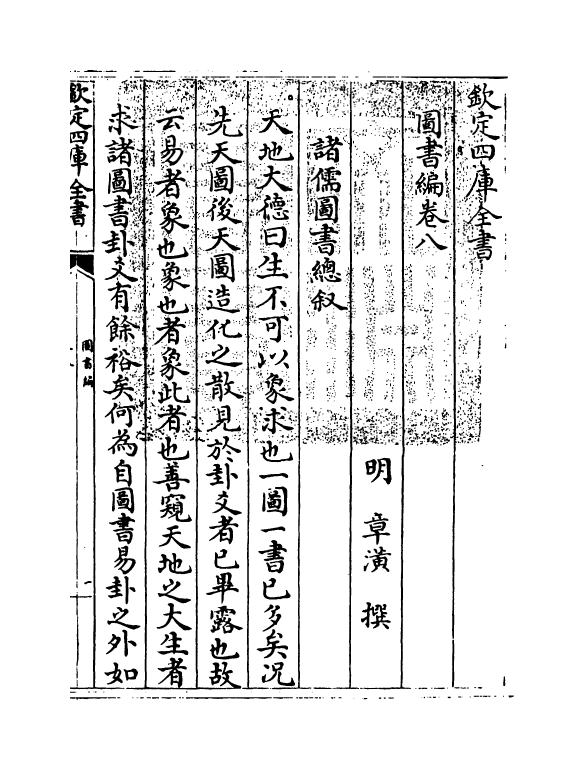 欽定四庫全書
圖書編卷八
明 章潢 撰
諸儒圖書總叙
天地大德曰生不可以象求也一圖一書已多矣况
先天圖後天圖造化之散見於卦爻者已畢露也故
云易者象也象也者象此者也善窺天地之大生者
求諸圖書卦爻有餘裕矣何為自圖書易卦之外如
欽定四庫全書
圖書編
一